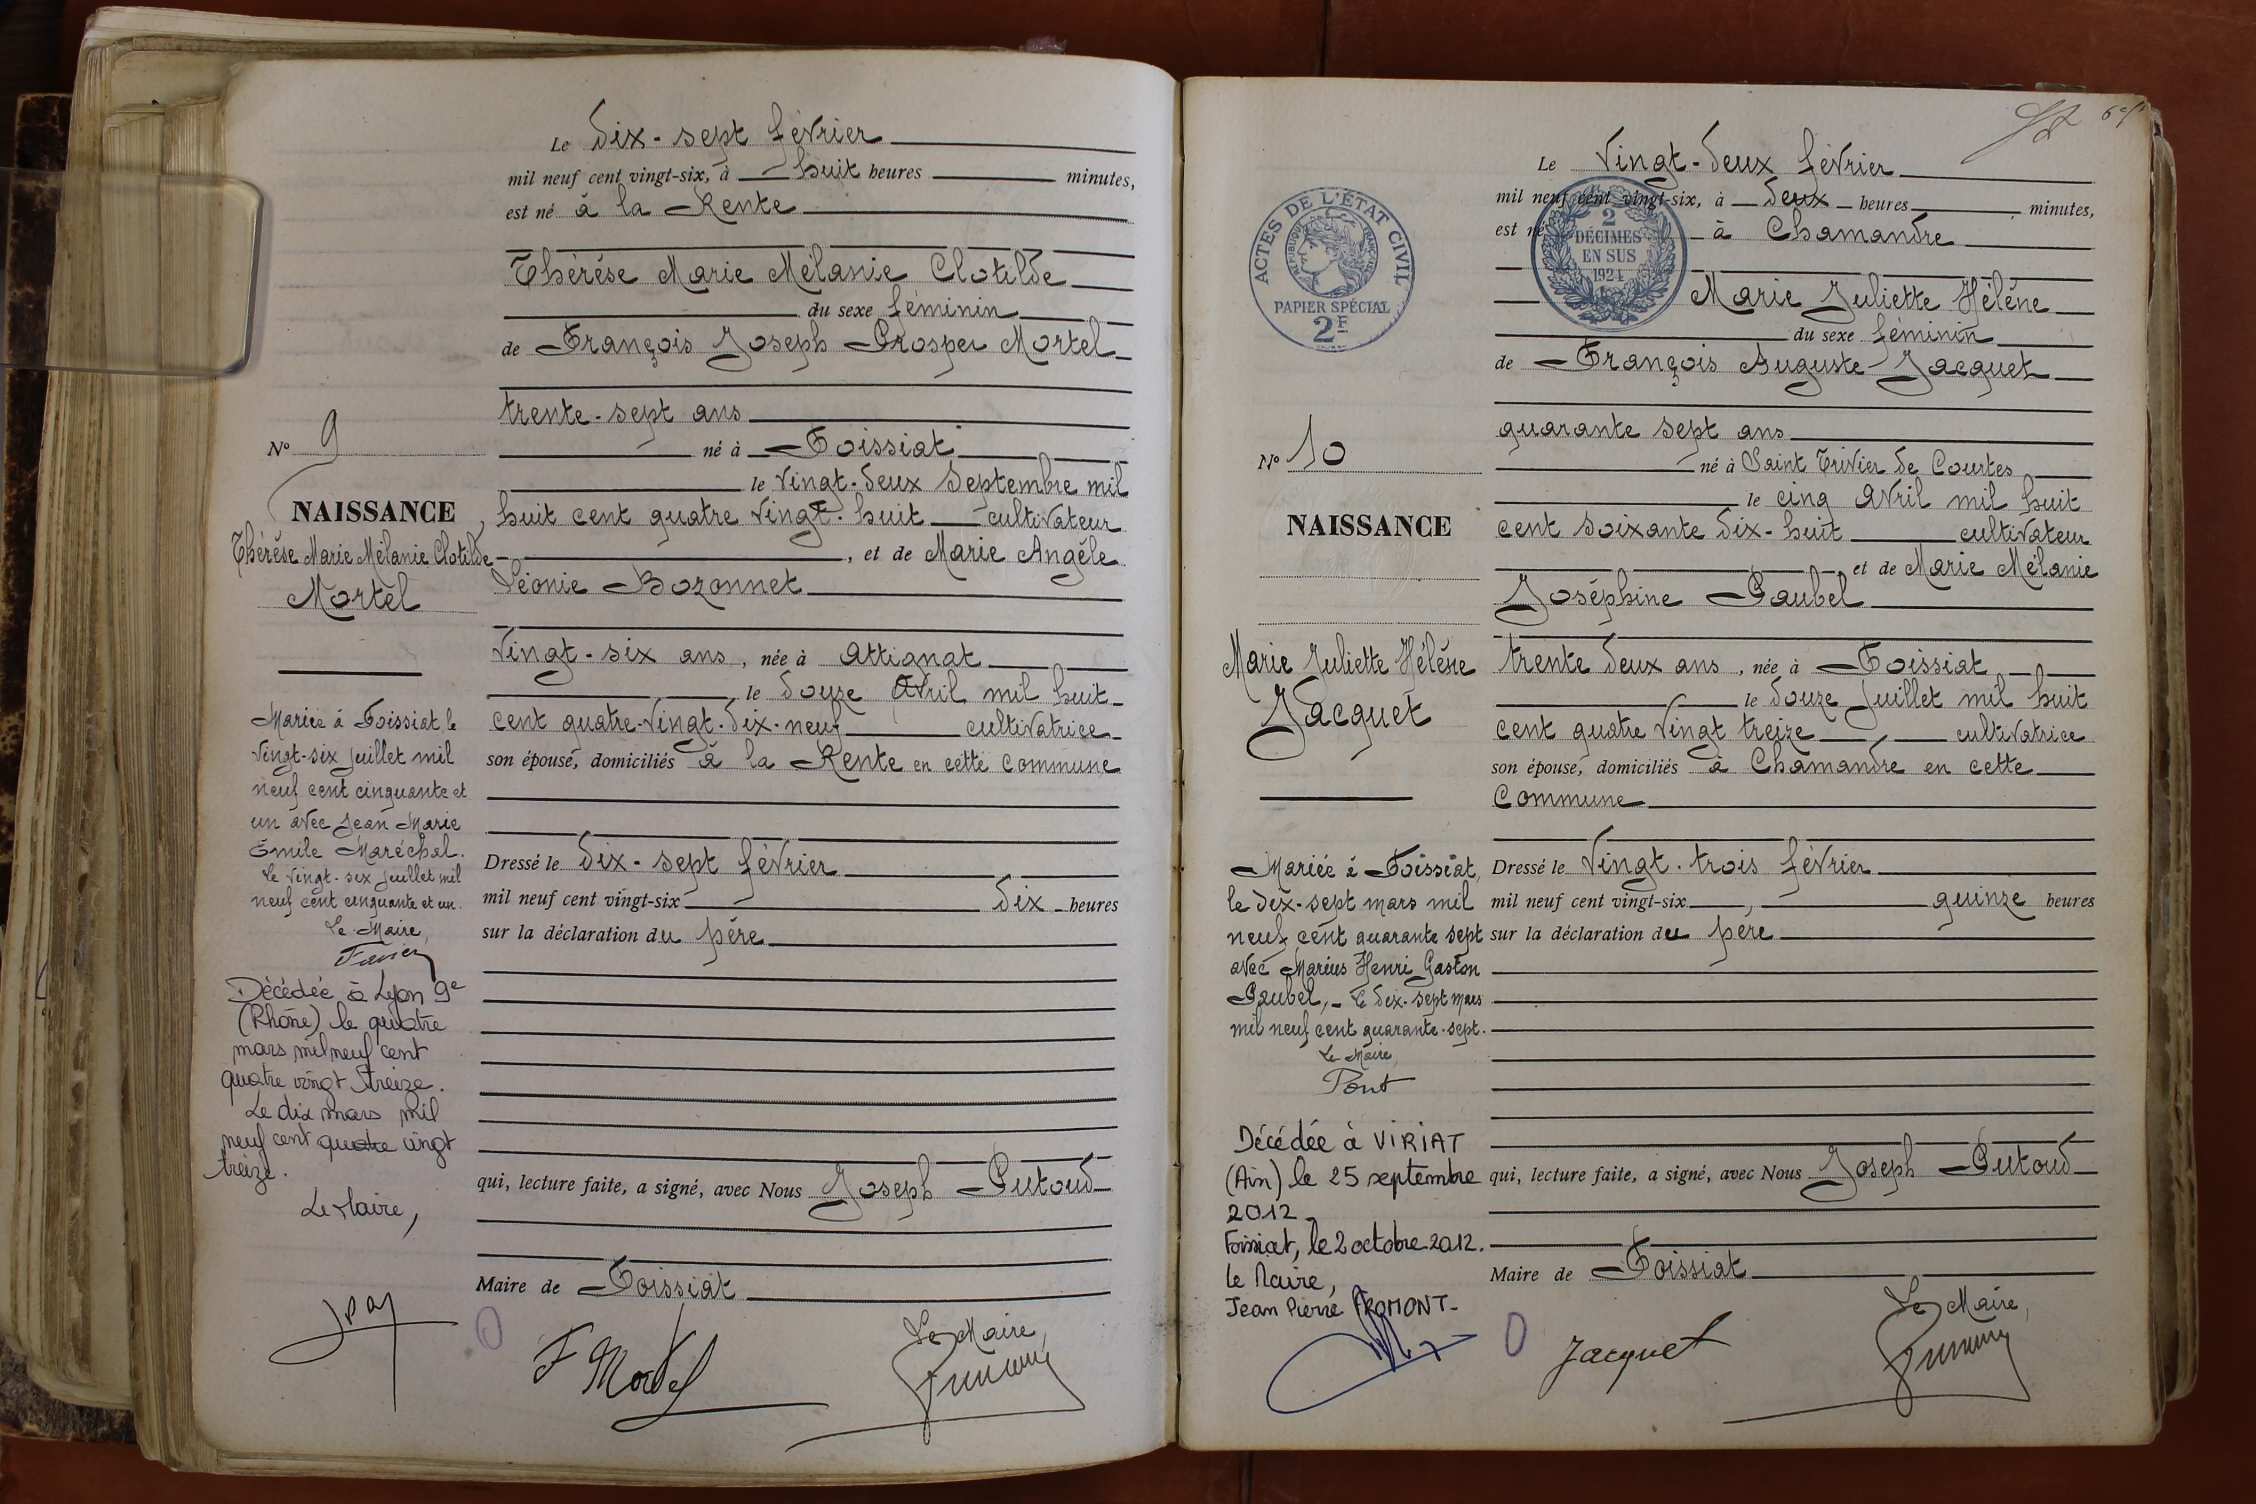 Le dix-sept février
mil neuf cent vingt-six, à huit heures minutes,
est né à la Rente
Thérèse Marie Mélanie Clotilde
du sexe féminin
de François Joseph Prosper Mortel
trente-sept ans
né à Foissiat
le vingt-deux Septembre mil
huit cent quatre vingt-huit cultivateur
, et de Marie Angèle
Léonie Bozonnet
vingt-six ans, née à Attignat
le douze Avril mil huit
cent quatre-vingt-dix-neuf cultivatrice
son épouse, domiciliés à la Rente en cette commune
Dressé le dix-sept février
mil neuf cent vingt-six dix heures
sur la déclaration du père
qui, lecture faite, a signé, avec Nous Joseph Putoud
Maire de Foissiat
F Mortel
Le Maire,
No 9
NAISSANCE
Thérèse Marie Mélanie Clotilde
Mortel
Mariée à Foissiat le
vingt-six juillet mil
neuf cent cinquante et
un avec Jean Marie
Émile Maréchal.
Le vingt-six juillet mil
neuf cent cinquante et un.
Le Maire,
Décédée à Lyon 9e
(Rhône) le quatre
mars mil neuf cent
quatre vingt treize.
Le dix mars mil
neuf cent quatre vingt
treize.
Le Maire,
Le vingt-deux février
mil neuf cent vingt-six, à deux heures minutes,
est né à Chamandre
Marie Juliette Hélène
du sexe féminin
de François Auguste Jacquet
quarante sept ans
né à Saint Trivier de Courtes
le cinq Avril mil huit
cent soixante dix-huit cultivateur
et de Marie Mélanie
Joséphine Paubel
trente deux ans, née à Foissiat
le douze juillet mil huit
cent quatre vingt treize, cultivatrice
son épouse, domiciliés à Chamandre en cette
Commune
Dressé le vingt-trois février
mil neuf cent vingt-six, quinze heures
sur la déclaration du père
qui, lecture faite, a signé, avec Nous Joseph Putoud
Maire de Foissiat
Jacquet
Le Maire,
ACTES DE L'ÉTAT CIVIL
RÉPUBLIQUE FRANÇAISE
PAPIER SPÉCIAL
2F
2
DÉCIMES
EN SUS
1924
No 10
NAISSANCE
Marie Juliette Hélène
Jacquet
Mariée à Foissiat,
le dix-sept mars mil
neuf cent quarante sept
avec Marius Henri Gaston
Paubel, - Le dix-sept mars
mil neuf cent quarante-sept.
Le Maire,
Pont
Décédée à VIRIAT
(Ain) le 25 septembre
2012.
Foissiat, le 2 octobre 2012.
Le Maire,
Jean Pierre FROMONT-